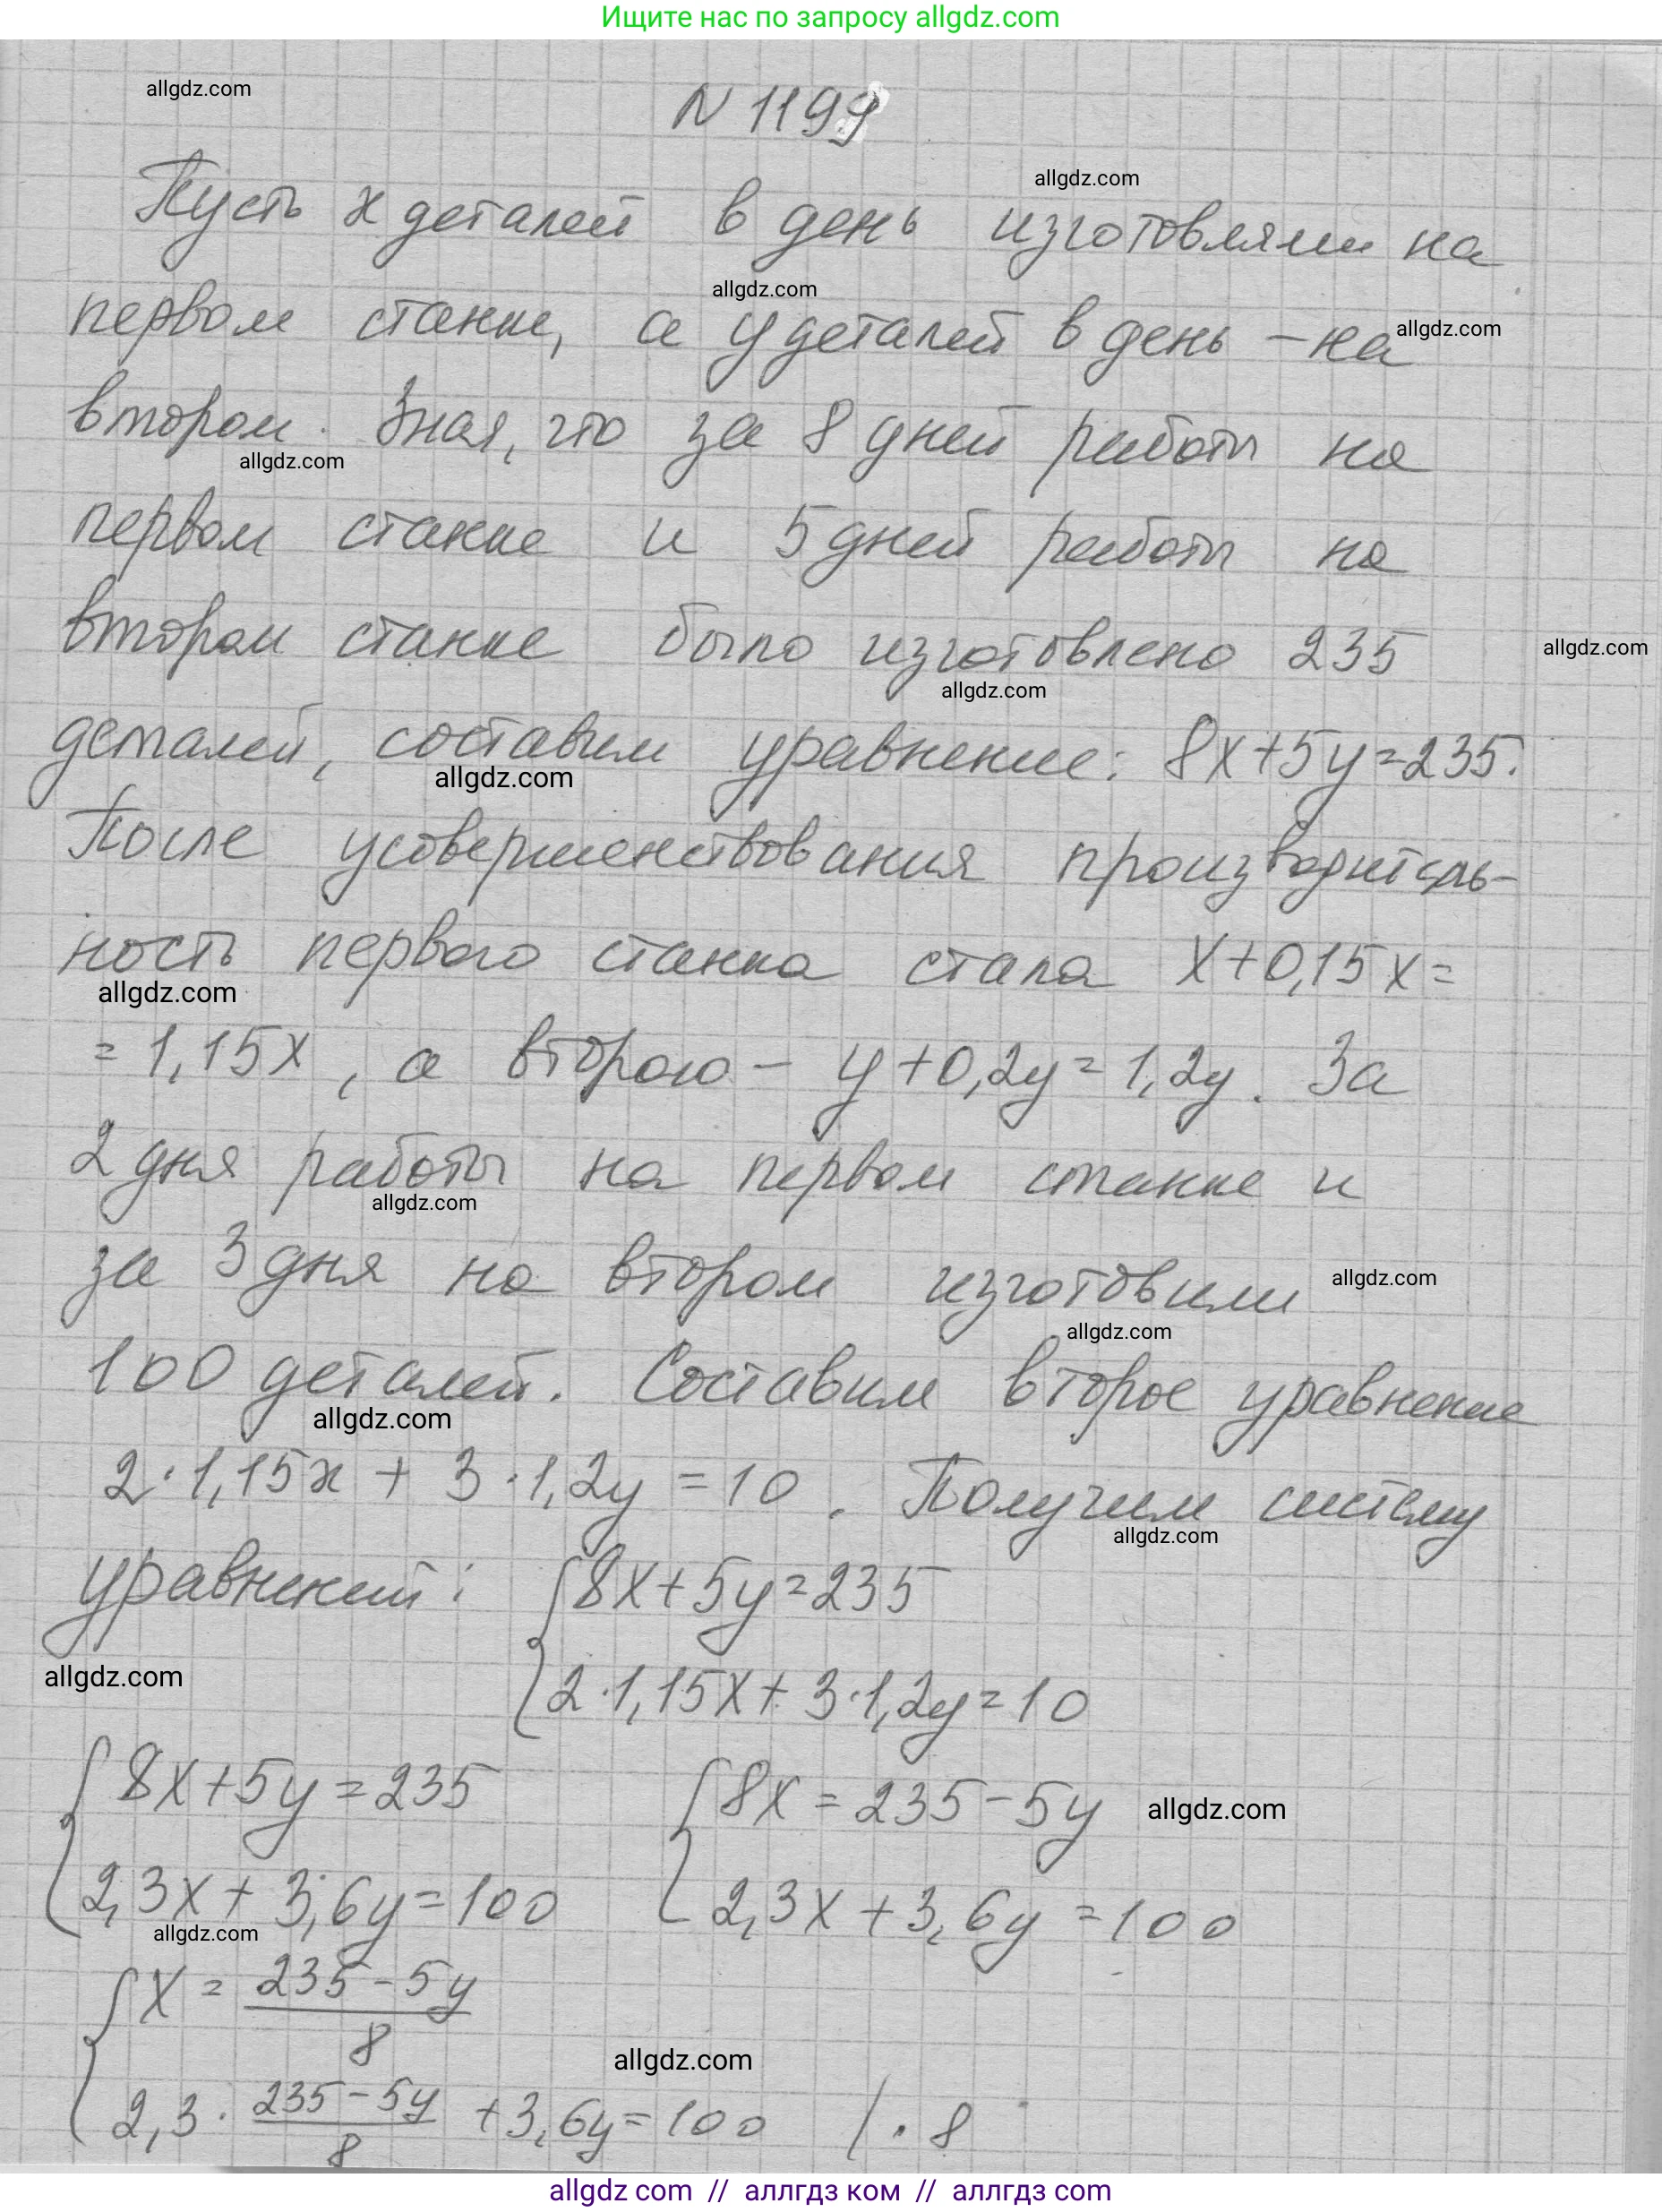 Ищите нас по запросу allgdz.com
allgdz.com
N 1199
allgdz.com
Пусть x деталей в день изготовляли на
allgdz.com
первом станке, а y деталей в день – на
allgdz.com
втором. Зная, что за 8 дней работы на
allgdz.com
первом станке и 5 дней работы на
втором станке было изготовлено 235
allgdz.com
allgdz.com
деталей, составим уравнение: 8x+5y=235.
allgdz.com
После усовершенствования производитель-
ность первого станка стала x+0,15x=
allgdz.com
= 1,15x, а второго – y+0,2y=1,2y. За
2 дня работы на первом станке и
allgdz.com
за 3 дня на втором изготовили
allgdz.com
allgdz.com
100 деталей. Составим второе уравнение
allgdz.com
2·1,15x + 3·1,2y = 10. Получим систему
allgdz.com
уравнений: {8x+5y=235
allgdz.com
{2·1,15x+3·1,2y=10
{8x+5y=235 {8x=235-5y
allgdz.com
{2,3x+3,6y=100 {2,3x+3,6y=100
allgdz.com
{x = (235-5y)/8
allgdz.com
{2,3·(235-5y)/8 +3,6y=100 /·8
allgdz.com // аллгдз ком // аллгдз com